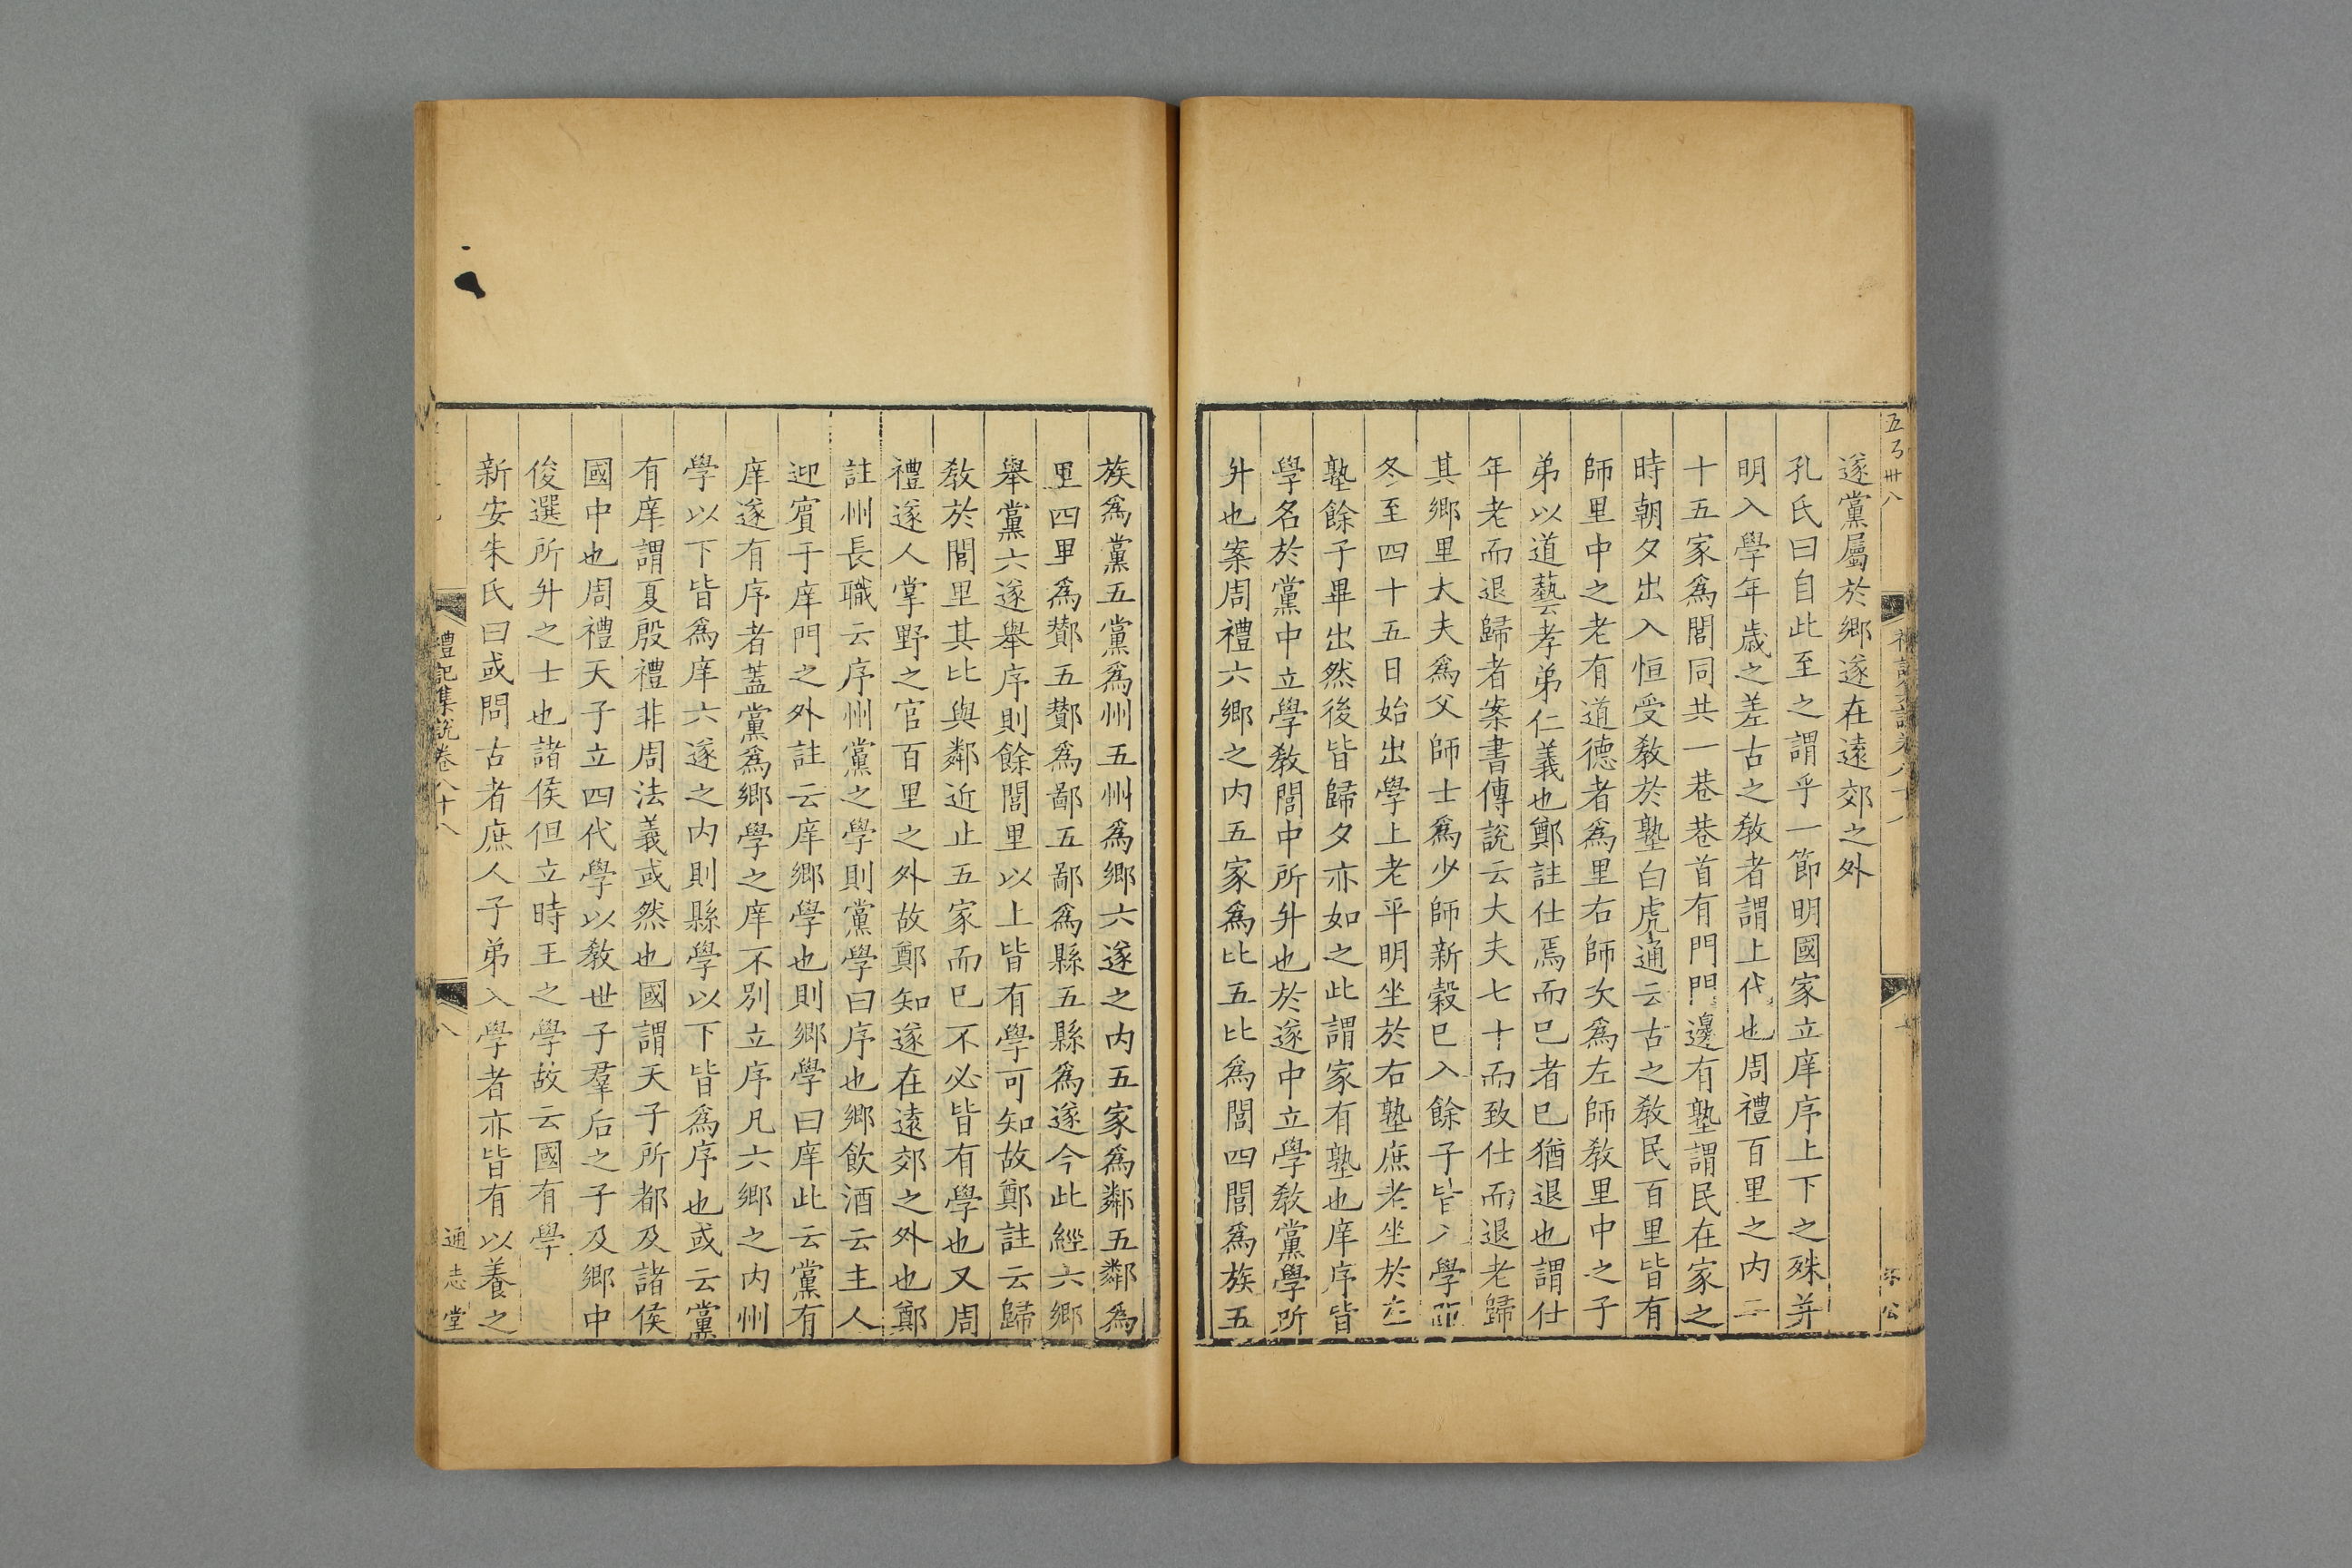 遂黨屬於鄉遂在遠郊之外
孔氏曰自此至之謂乎一節明國家立庠序上下之殊并
明入學年歲之差古之敎者謂上代也周禮百里之內二
十五家爲閭同共一巷巷首有門門邊有塾謂民在家之
時朝夕出入恒受敎於塾白虎通云古之敎民百里皆有
師里中之老有道德者爲里右師次爲左師敎里中之子
弟以道藝孝弟仁義也鄭註仕焉而已者已猶退也謂仕
年老而退歸者案書傳說云大夫七十而致仕而退老歸
其鄉里大夫爲父師士爲少師新穀已入餘子皆入學
冬至四十五日始出學上老平明坐於右塾庶老坐於左
塾餘子畢出然後皆歸夕亦如之此謂家有塾也庠序皆
學名於黨中立學敎閭中所升也於遂中立學敎黨學所
升也案周禮六鄉之內五家爲比五比爲閭四閭爲族五
族爲黨五黨爲州五州爲鄉六遂之內五家爲鄰五鄰爲
里四里爲酇五酇爲鄙五鄙爲縣五縣爲遂今此經六鄉
舉黨六遂舉序則餘閭里以上皆有學可知故鄭註云歸
敎於閭里其比與鄰近止五家而已不必皆有學也又周
禮遂人掌野之官百里之外故鄭知遂在遠郊之外也鄭
註州長職云序州黨之學則黨學曰序也鄉飲酒云主人
迎賓于庠門之外註云庠鄉學也則鄉學曰庠此云黨有
庠遂有序者蓋黨爲鄉學之庠不別立序凡六鄉之內州
學以下皆爲庠六遂之內則縣學以下皆爲序也或云黨
有庠謂夏殷禮非周法義或然也國謂天子所都及諸侯
國中也周禮天子立四代學以敎世子羣后之子及鄉中
俊選所升之士也諸侯但立時王之學故云國有學
新安朱氏曰或問古者庶人子弟入學者亦皆有以養之
禮記集說卷八十八
八
通志堂